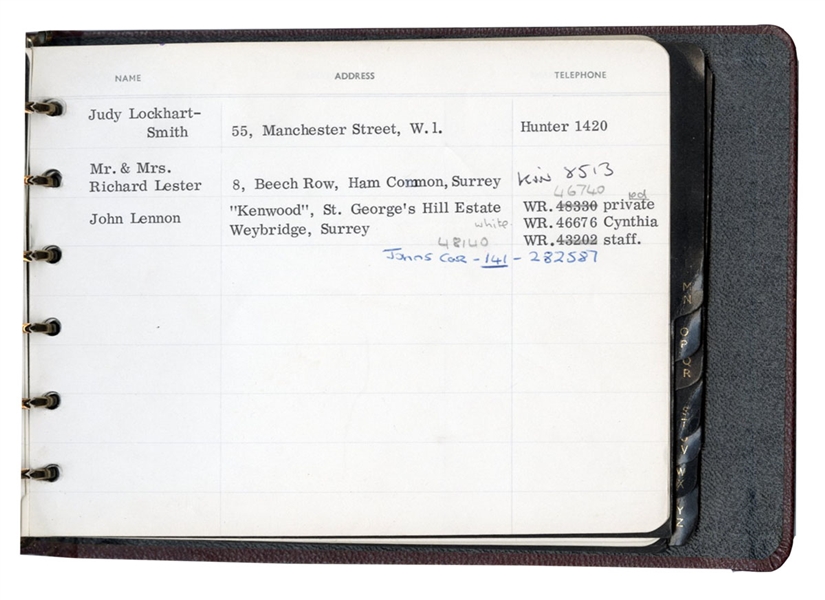 NAME ADDRESS TELEPHONE
Judy Lockhart-
Smith 55, Manchester Street, W.1. Hunter 1420
Mr. & Mrs.
Richard Lester 8, Beech Row, Ham Common, Surrey Kin 8513
46740 red
John Lennon "Kenwood", St. George's Hill Estate WR. 48330 private
Weybridge, Surrey white WR. 46676 Cynthia
48140 WR. 43202 staff.
Johns Car - 141 - 282587
M
N
O
P
Q
R
S
T
U
V
W
X
Y
Z